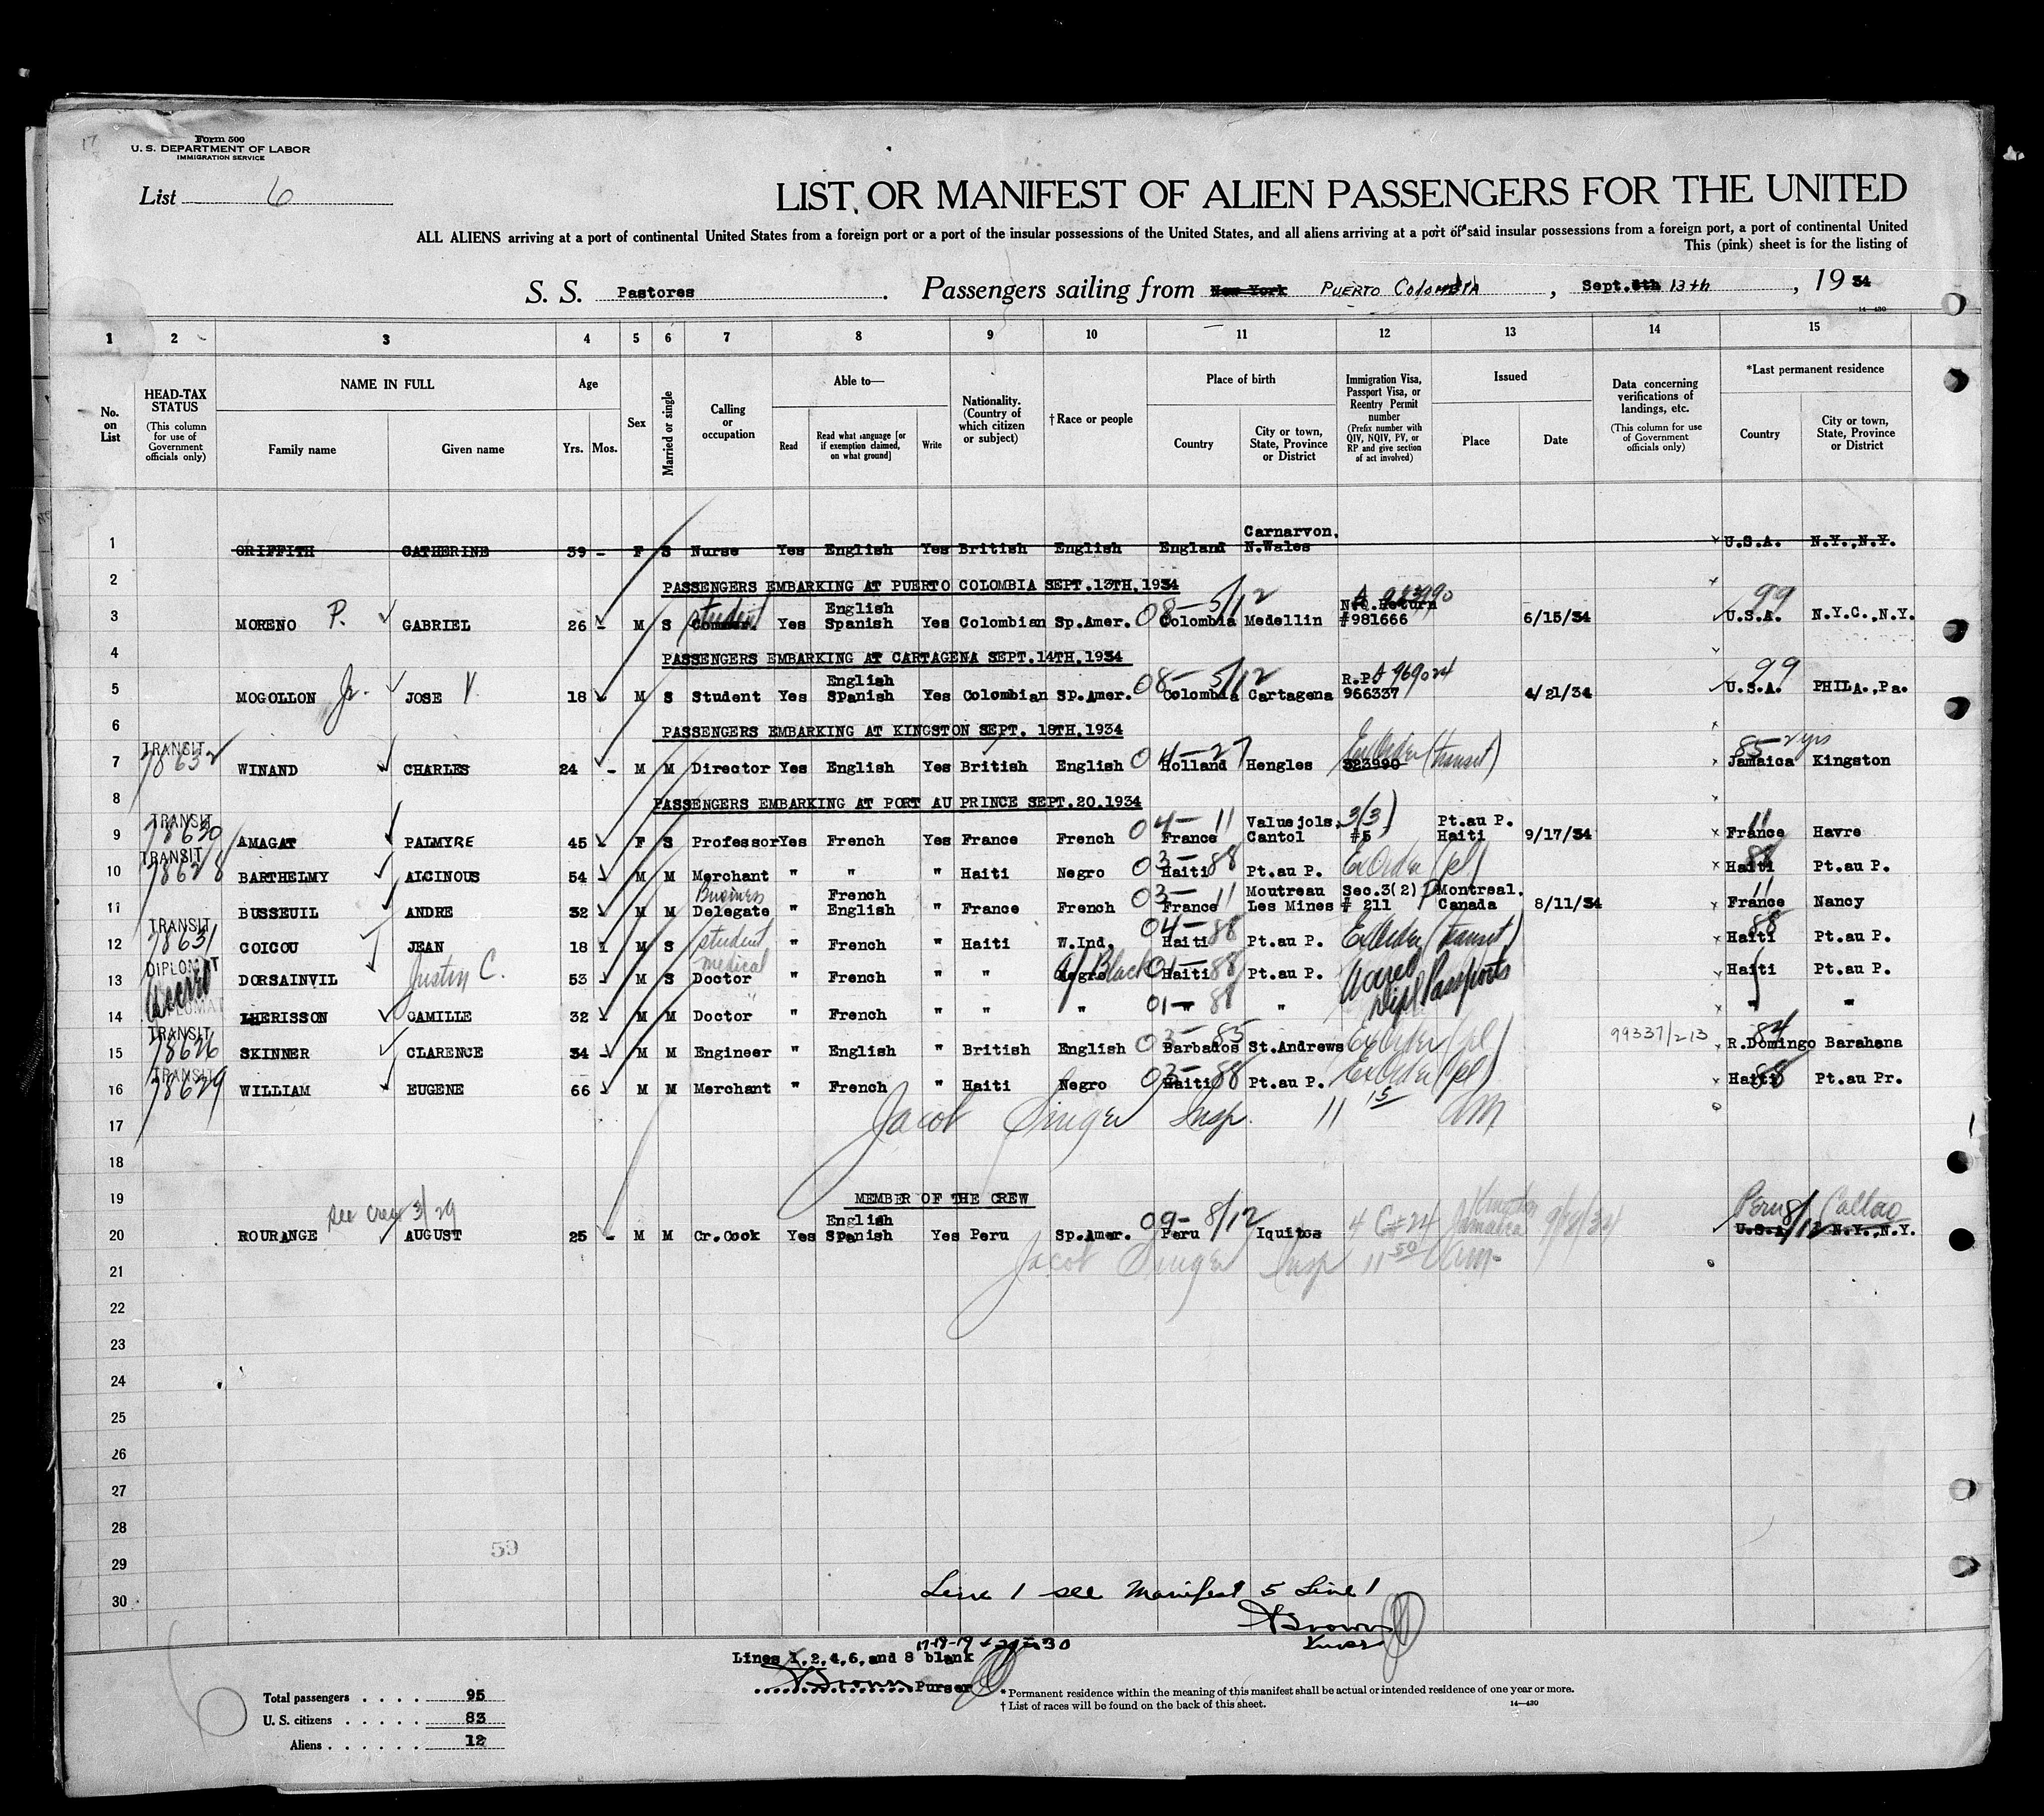 Form 500
U. S. DEPARTMENT OF LABOR
IMMIGRATION SERVICE
List 6
LIST OR MANIFEST OF ALIEN PASSENGERS FOR THE UNITED
ALL ALIENS arriving at a port of continental United States from a foreign port or a port of the insular possessions of the United States, and all aliens arriving at a port of said insular possessions from a foreign port, a port of continental United
This (pink) sheet is for the listing of
S. S. Pastores. Passengers sailing from New York PUERTO COLOMBIA, Sept. 8th 13th, 19 34
14-430
1 2 3 4 5 6 7 8 9 10 11 12 13 14 15
No. on List
HEAD-TAX STATUS (This column for use of Government officials only)
NAME IN FULL
Family name Given name
Age
Yrs. Mos.
Sex
Married or single
Calling or occupation
Able to—
Read Read what language [or if exemption claimed, on what ground] Write
Nationality. (Country of which citizen or subject)
†Race or people
Place of birth
Country City or town, State, Province or District
Immigration Visa, Passport Visa, or Reentry Permit number (Prefix number with QIV, NQIV, PV, or RP and give section of act involved)
Issued
Place Date
Data concerning verifications of landings, etc. (This column for use of Government officials only)
*Last permanent residence
Country City or town, State, Province or District
1 GRIFFITH CATHERINE 39 - F S Nurse Yes English Yes British English England Carnarvon, N.Wales U.S.A. N.Y.,N.Y.
2 PASSENGERS EMBARKING AT PUERTO COLOMBIA SEPT.13TH,1934
3 MORENO P. GABRIEL 26 - M S Student Yes English Spanish Yes Colombian Sp.Amer. 08-5/12 Colombia Medellin N.Q.Return #981666 6/15/34 99 U.S.A. N.Y.C.,N.Y.
4 PASSENGERS EMBARKING AT CARTAGENA SEPT.14TH,1934
5 MOGOLLON Jr. JOSE V. 18 - M S Student Yes English Spanish Yes Colombian Sp.Amer. 08-5/12 Colombia Cartagena R.P. A 969024 966337 4/21/34 99 U.S.A. PHILA.,Pa.
6 PASSENGERS EMBARKING AT KINGSTON SEPT. 18TH,1934
7 TRANSIT 78632 WINAND CHARLES 24 - M M Director Yes English Yes British English 04-27 Holland Hengles Ex Order (transit) 323990 85-2 yrs Jamaica Kingston
8 PASSENGERS EMBARKING AT PORT AU PRINCE SEPT.20.1934
9 TRANSIT 78630 AMAGAT PALMYRE 45 - F S Professor Yes French Yes France French 04-11 France Valuejols, Cantol 3(3) #5 Pt.au P. Haiti 9/17/34 11 France Havre
10 TRANSIT 78628 BARTHELMY ALCINOUS 54 M M Merchant " " " Haiti Negro 03-88 Haiti Pt.au P. Ex Order (pl) 88 Haiti Pt.au P.
11 BUSSEUIL ANDRE 32 M M Business Delegate " French English " France French 03-11 France Moutreau Les Mines Sec.3(2) # 211 Montreal. Canada 8/11/34 11 France Nancy
12 TRANSIT 78631 COICOU JEAN 18 M S student " French " Haiti W.Ind. 04-88 Haiti Pt.au P. Ex Order (transit) 88 Haiti Pt.au P.
13 DIPLOMAT DORSAINVIL Justin C. 53 M S medical Doctor " French " " Negro Af Black 01-88 Haiti Pt.au P. Accred Dipl Passports Haiti Pt.au P.
14 LHERISSON CAMILLE 32 M M Doctor " French " " " 01-88 " " " "
15 TRANSIT 78626 SKINNER CLARENCE 34 - M M Engineer " English " British English 03-85 Barbados St.Andrews Ex Order (pl) 99337/213 84 R.Domingo Barahona
16 TRANSIT 78629 WILLIAM EUGENE 66 M M Merchant " French " Haiti Negro 03-88 Haiti Pt.au P. Ex Order (pl) 88 Haiti Pt.au Pr.
17 Jacob Singer Insp. 11 15 AM
18
19 MEMBER OF THE CREW
20 ROURANGE see crew 3/29 AUGUST 25 - M M Cr.Cook Yes English Spanish Yes Peru Sp.Amer. 09-8/12 Peru Iquitos 4 C#24 Kingston Jamaica 9/18/34 Peru 8/12 Callao U.S.A. N.Y.,N.Y.
21 Jacob Singer Insp 11 50 am
22
23
24
25
26
27
28
29
59
30
Line 1 see Manifest 5 Line 1
Brown
Purser
17-18-19 + 21 to 30
Lines 1,2,4,6,and 8 blank
Brown Purser
Total passengers . . . . 95
U. S. citizens . . . . . 83
Aliens . . . . . . 12
*Permanent residence within the meaning of this manifest shall be actual or intended residence of one year or more.
† List of races will be found on the back of this sheet.
14-430